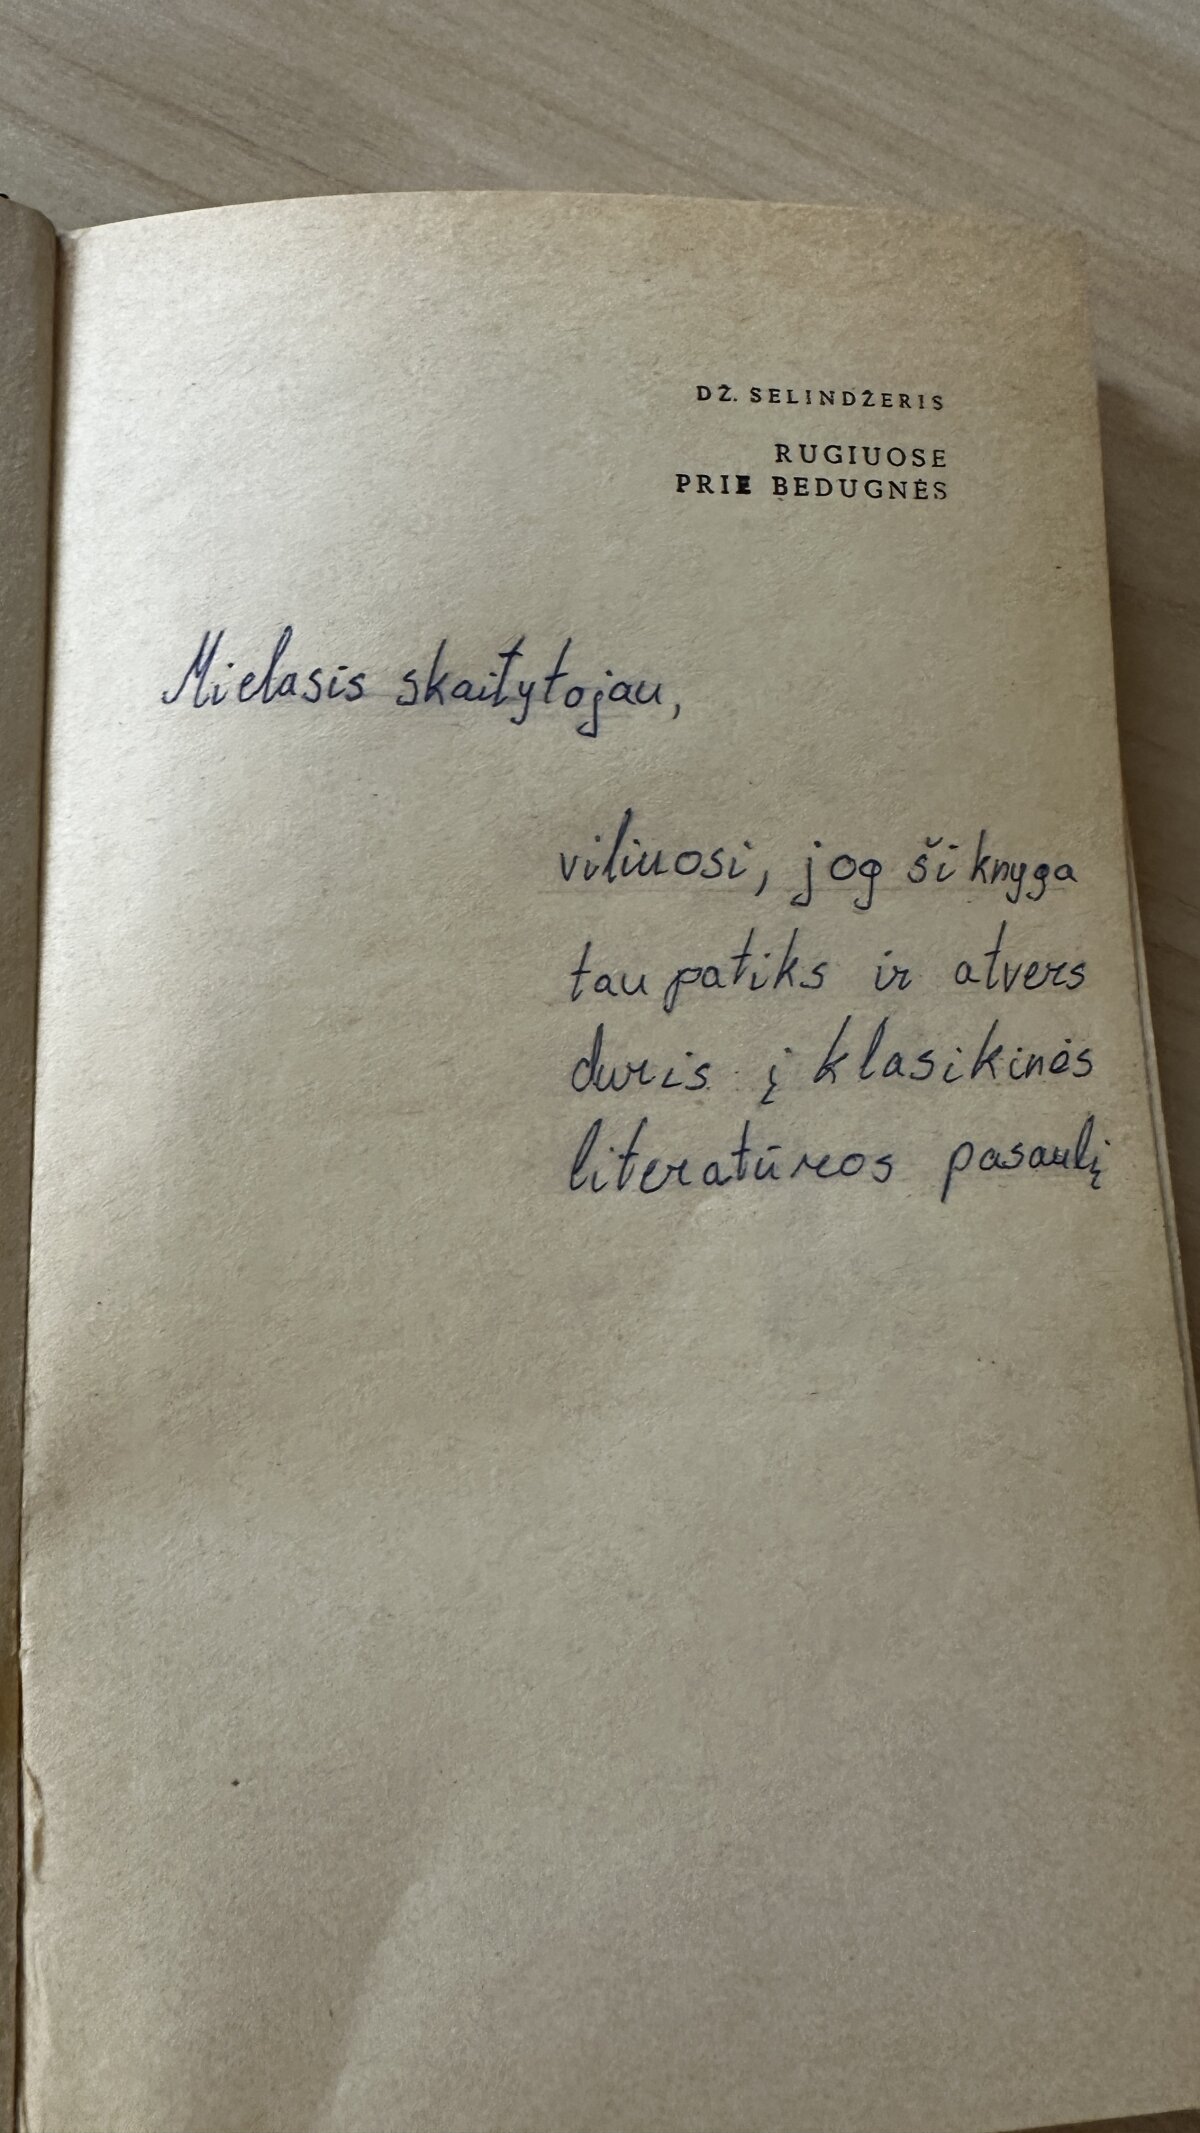 DŽ. SELINDŽERIS
RUGIUOSE
PRIE BEDUGNĖS
Mielasis skaitytojau,
viliuosi, jog ši knyga
tau patiks ir atvers
duris į klasikinės
literatūros pasaulį